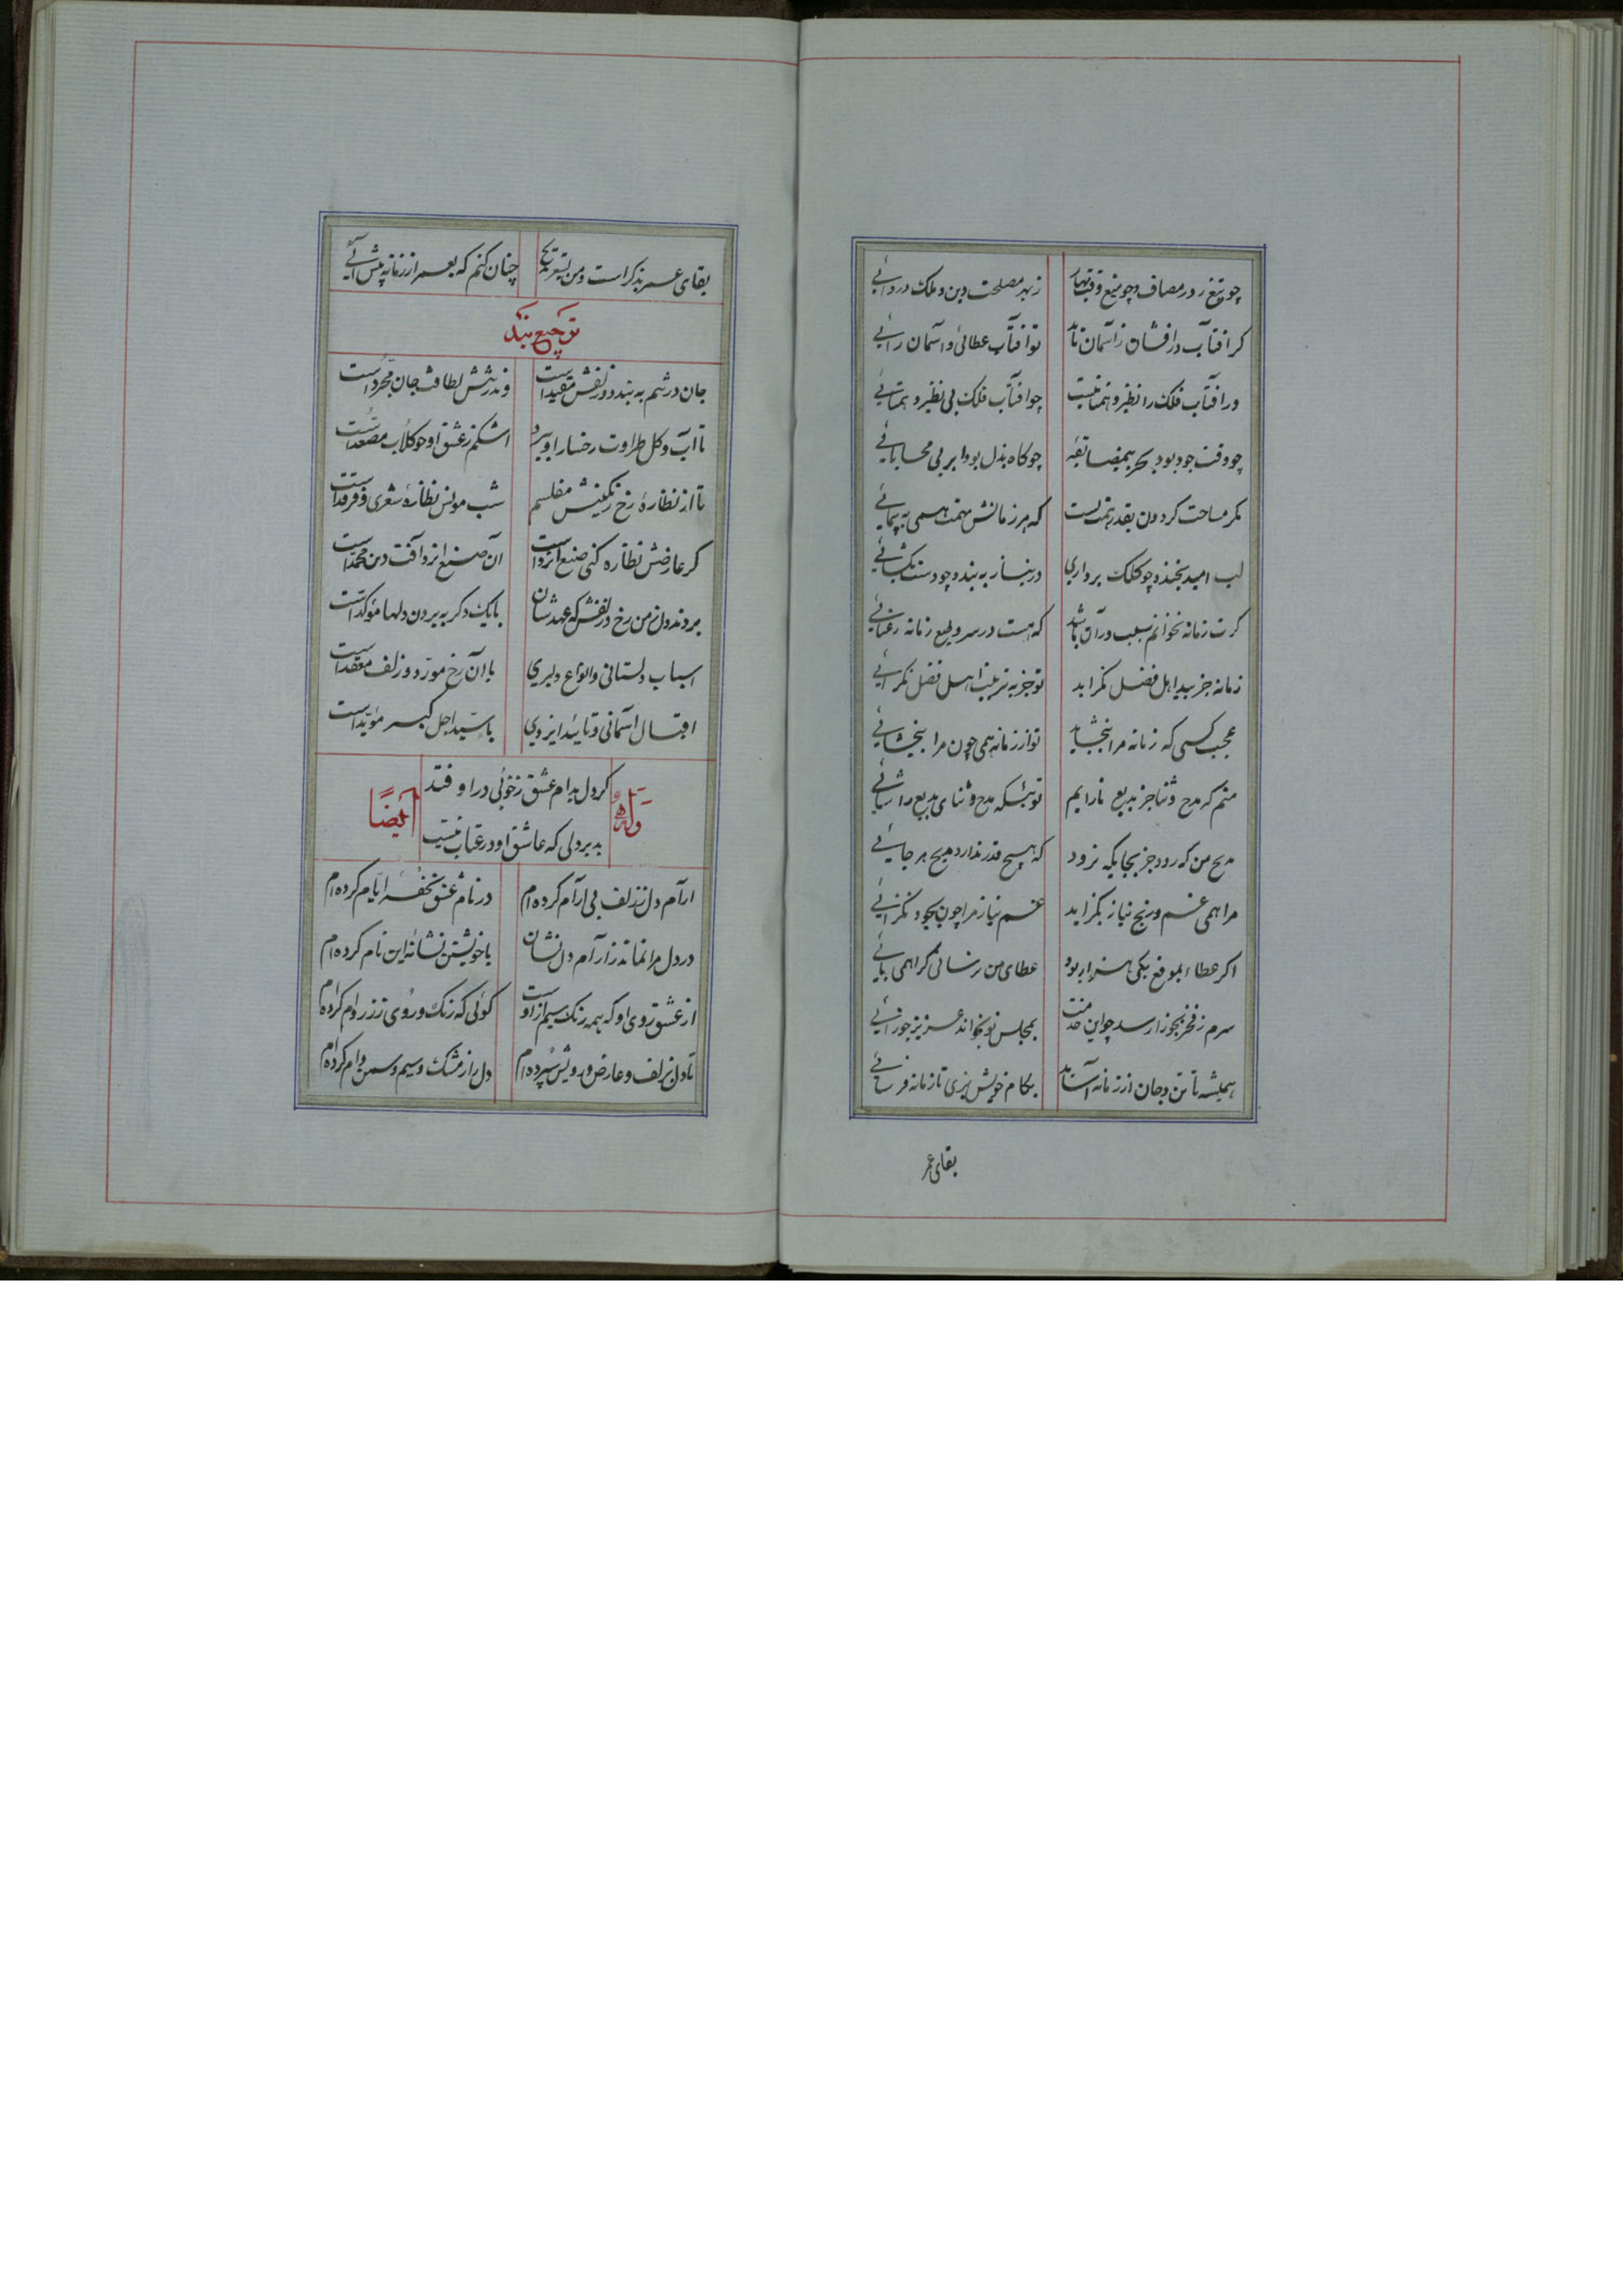 چو تیغ در مصاف و چو تیغ وقت نهار زبهر مصلحت دین و ملک دروائی
کر افتاب درافشان زآسمان تابد توافتاب عطائی و اسمان رائی
ورافتاب فلک را نظیر و همتا نیست چوافتاب فلک بی نظیر و همتائی
چو وقت جود بود بحر بیمضایقهٔ چو کاه بذل بود ابر بی محابائی
مکر مساحت کردون بقدر همت تست که هر زمانش بهمت همی به پیمائی
لب امید بخندد چو کلک برداری در نیاز به بندد چو دست بکشائی
کرت زمانه نخوانم سبب دران باشد که هست در سر و طبع زمانه رعنائی
زمانه جز ببد اهل فضل نکراید تو جز به تربیت اهل فضل نکرائی
عجب کسی که زمانه مرا نبخشاید تو از زمانه همی چون مرا نبخشائی
منم که مدح و ثنا جز بدیع نارایم توئیکه مدح و ثنای بدیع را شائی
مدیح من که رود جز بجایکه نرود که هیچ قدر ندارد مدیح هر جائی
مرا همی غم و رنج نیاز بکزاید غم نیاز مرا چون بجود نکزائی
اکر عطاء بموقع یکی هزار بود عطای من برسانی مکر همی بائی
سرم زفخر بجوزا رسد چو این خدمت بمجلس تو بخواند عزیز جوزائی
همیشه تا تن و جان از زمانه آساید بکام خویش بزی تا زمانه فرسائی
بقای عمر
بقای عمر بذکر است و من بشعر بدیع چنان کنم که بعمر از زمانه پیش ائی
ترجیع بند
جان در تنم به بند دو زلفش مقید است وندر تنش لطافت جان مجرد است
تا آب و کل طراوت رخسار او ببرد اشکم زعشق او چو کلاب مصعد است
تا از نظارهٔ رخ رنکینش مفلسم شب مونس نظارهٔ شعری و فرقد است
کر عارضش نظاره کنی صنع ایزد است آن صنع ایزد آفت دین محمد است
بردند دل زمن رخ و زلفش که عهدشان با یک دکر به بردن دلها موکد است
اسباب دلستانی و انواع دلبری با آن رخ مورد و زلف معقد است
اقبال اسمانی و تایید ایزدی با سید اجل کبیر مؤید است
کر دل بدام عشق زخوبی دراو فتد
وله ایضاً
بد بر دلی که عاشق او در عتاب نیست
آرام دل ززلف بی ارام کرده ام در نام عشق تحفهٔ ایام کرده ام
در دل مرا نماند زآرام دل نشان با خویشتن نشانهٔ این نام کرده ام
از عشق روی او که همه رنک سیم ازاوست کوئی که رنک و روی ززر وام کرده ام
تا دل بزلف و عارض و رویش سپرده ام دل را زمشک و سیم و سمن دام کرده ام